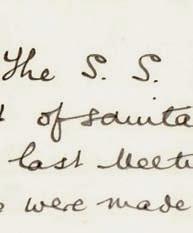 The S. S.
of sanita
last Meeti
were made